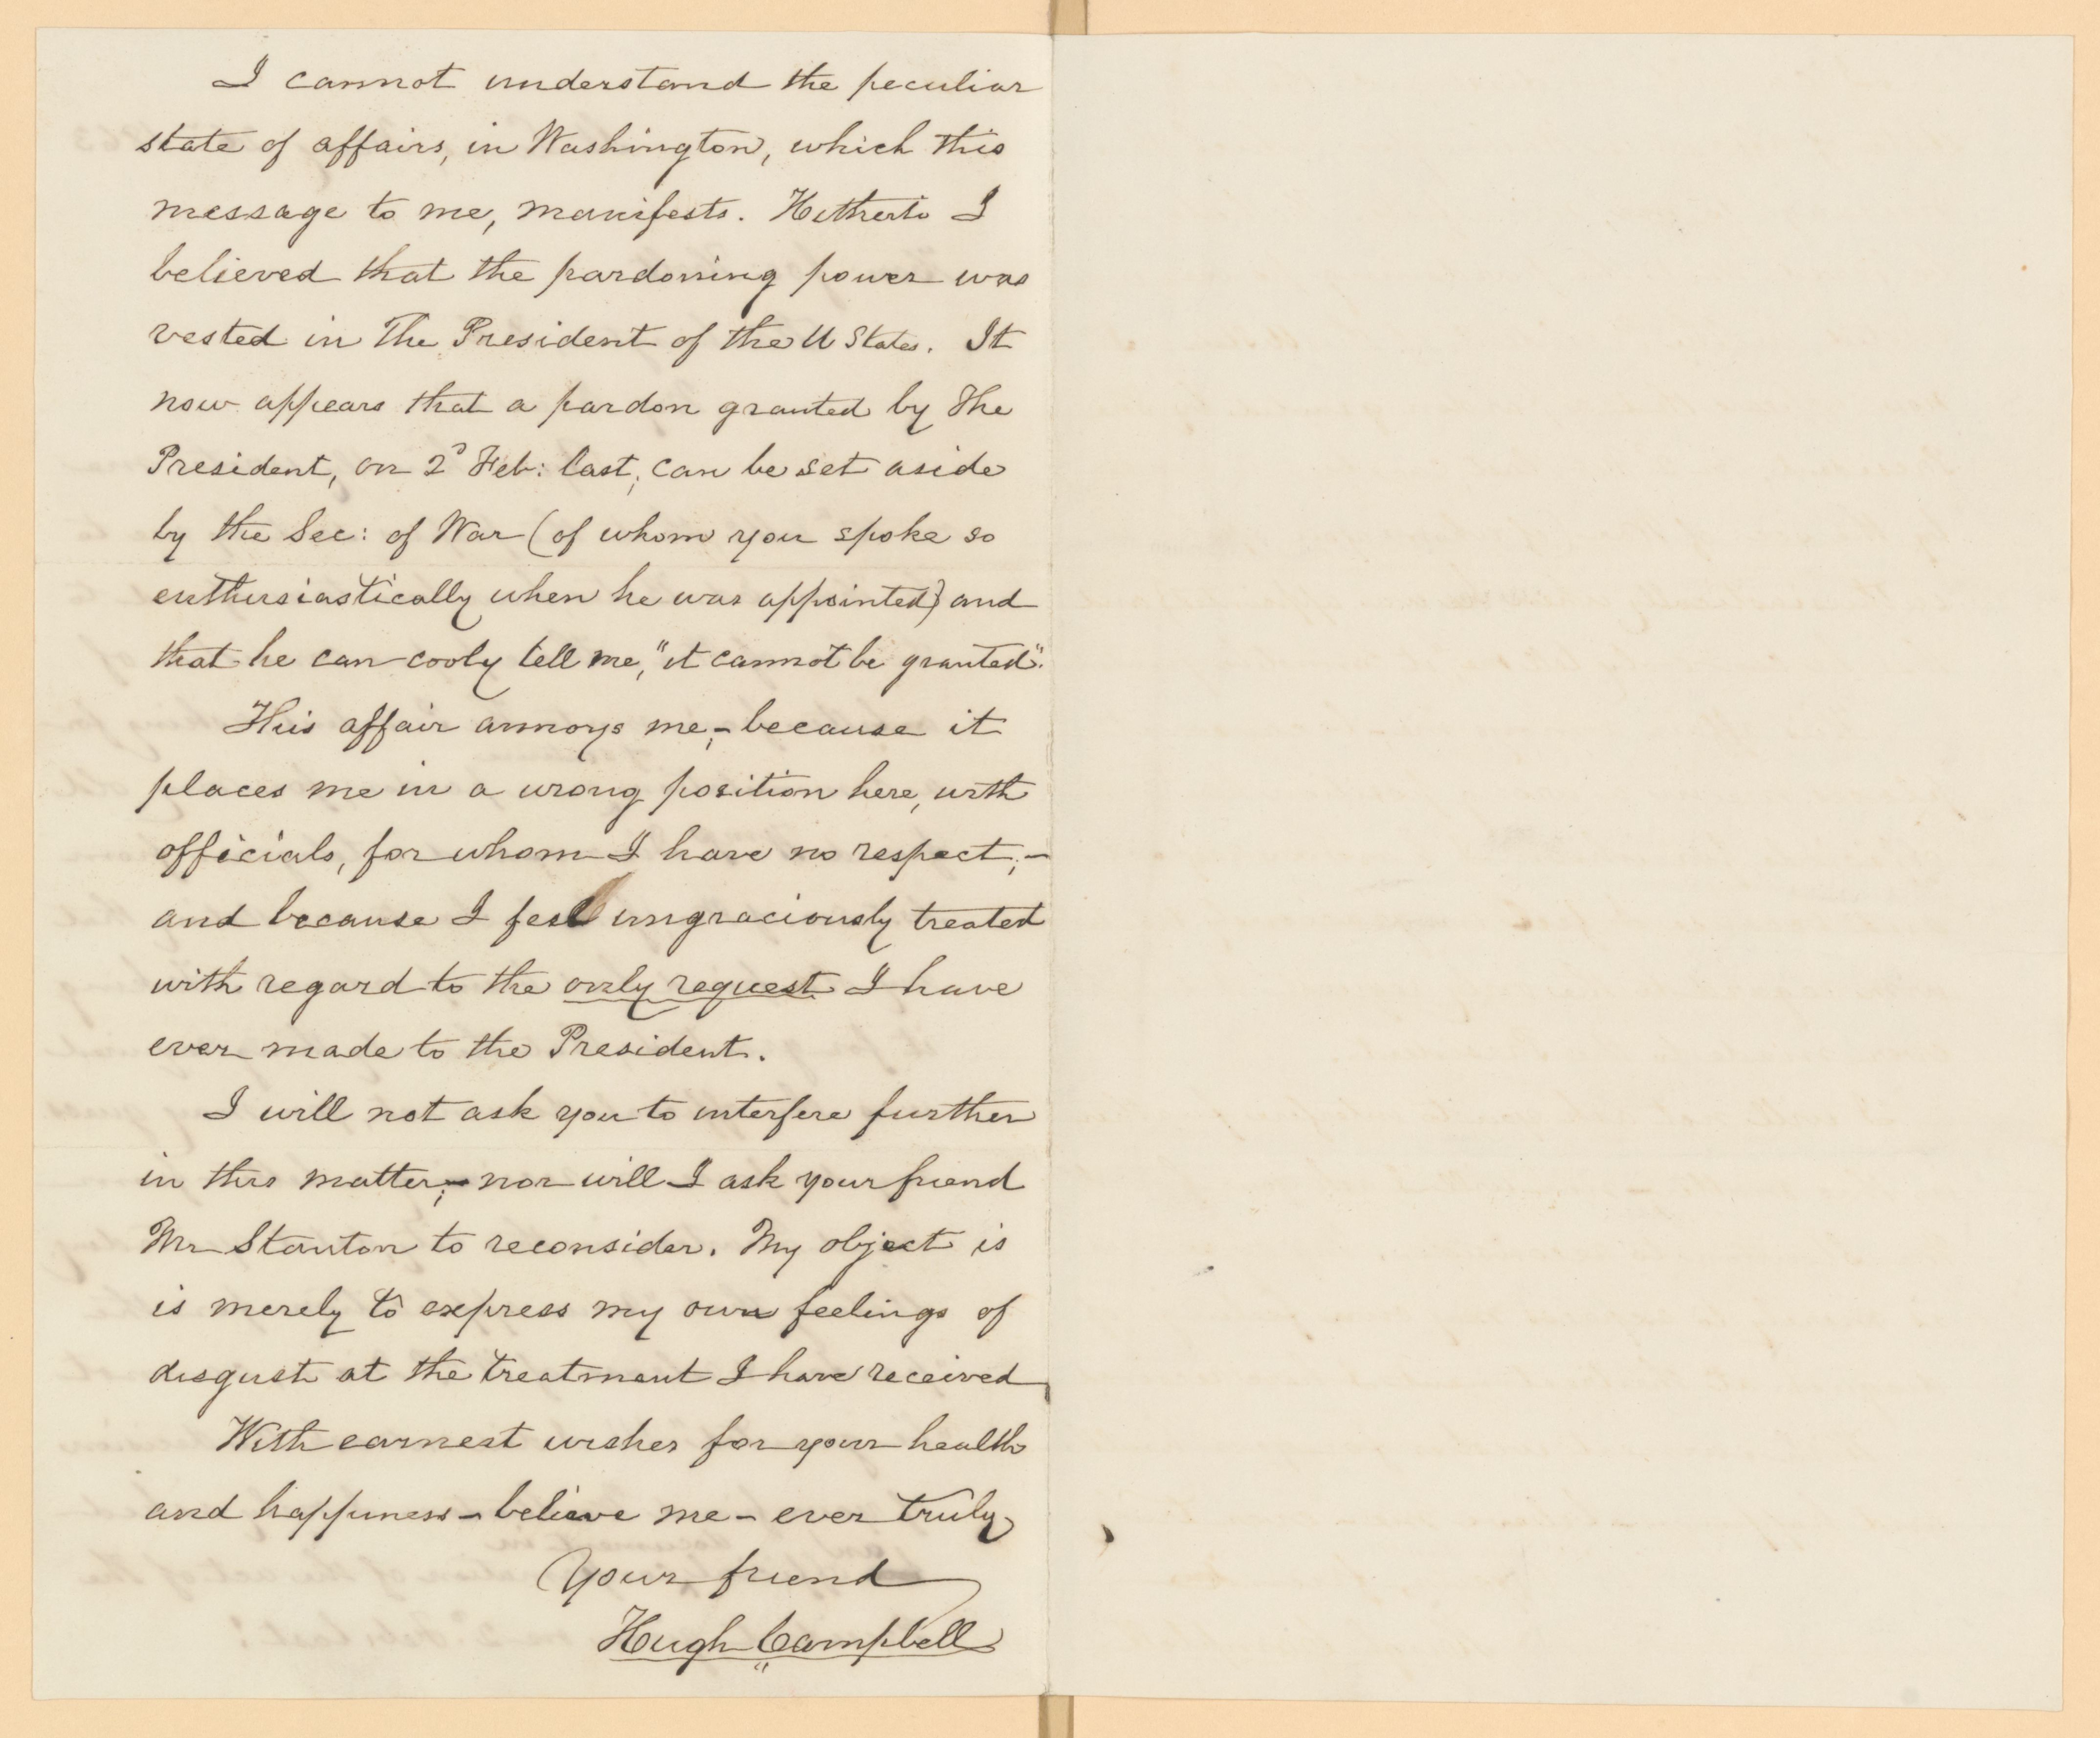 I cannot understand the peculiar
state of affairs, in Washington, which this
message to me, manifests. Hitherto I
believed that the pardoning power was
vested in The President of the U States. It
now appears that a pardon granted by The
President, on 2d Feb: last, can be set aside
by the Sec: of War (of whom you spoke so
enthusiastically when he was appointed) and
that he can cooly tell me, "it cannot be granted".
This affair annoys me;- because it
places me in a wrong position here, with
officials, for whom I have no respect;-
and because I feel ungraciously treated
with regard to the only request I have
ever made to the President.
I will not ask you to interfere further
in this matter;- nor will I ask your friend
Mr Stanton to reconsider. My object is
is merely to express my own feelings of
disgust at the treatment I have received
With earnest wishes for your health
and happiness - believe me - ever truly
Your friend
Hugh Campbell